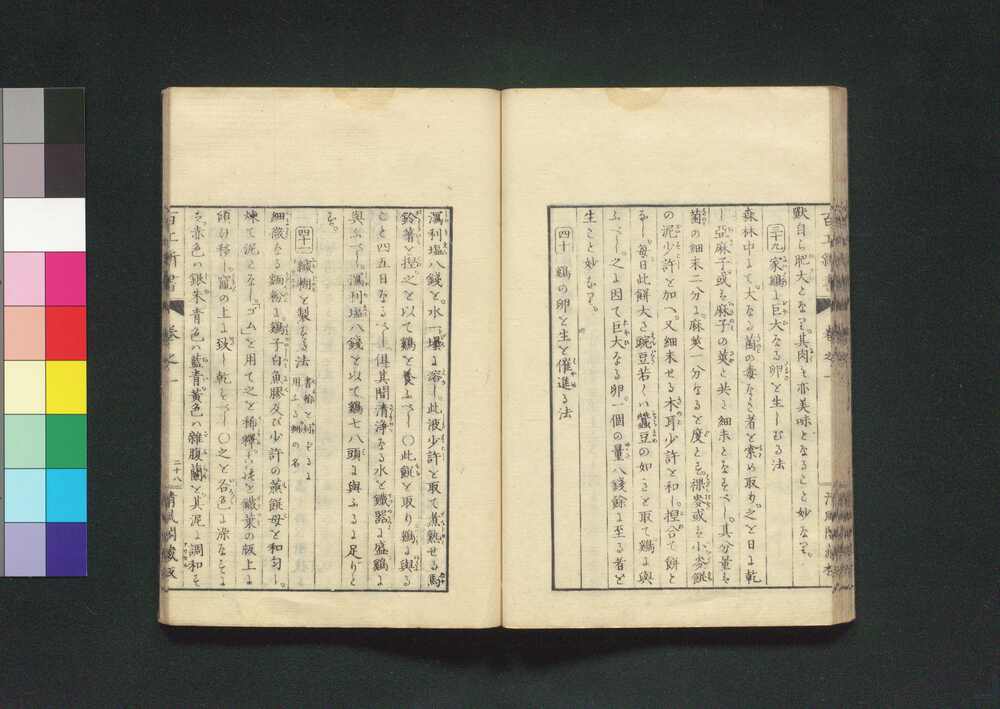 獣自ら肥大となる。其肉も亦美味となること妙なり。
三十九 家鶏に巨大なる卵を生しむる法
森林中よて。大なる菌の毒なき者を索め取り。之を日に乾
し亞麻子或ハ麻子の莢と共に細末となすべし。其分量ハ
菌の細末二分よ。麻莢一分なるを度とす。裸麥或ハ小麥麩
の泥少許を加へ。又細末せる木耳少許を和し。捏合て餅と
なし。毎日此餅大さ豌豆若くハ蠶豆の如きを取て鶏に與
ふべし。之に因て巨大なる卵。一個の量八錢餘に至る者を
生こと妙なり。
四十 鶏の卵を生を催進る法
瀉利塩八錢を。水一壜に溶し。此液少許を取て煮熟せる馬
鈴薯と捏之を以て鶏を養ふべし〇此餌を取り鶏に與る
こと四五日なるべし。但其間清浄なる水を鐵器に盛鶏に
與ふべし。瀉利塩八錢を以て鶏七八頭に與ふるに足りと
す。
四十一 緘糊を製する法 書翰を封するに用ふる糊の名
細緻なる麺粉を。鶏子白魚膠及び少許の蒸餅母と和匀し。
煉て泥となし「ゴム」を用て之を稀釋し。鐵葉の版上に
傾け移し。竈の上に致し乾すべし〇之を各色に染なすに
ハ。赤色ハ銀朱青色ハ藍青黄色ハ雜腹蘭を其泥に調和す
百工新書
巻之一
二十八
清風閣蔵版